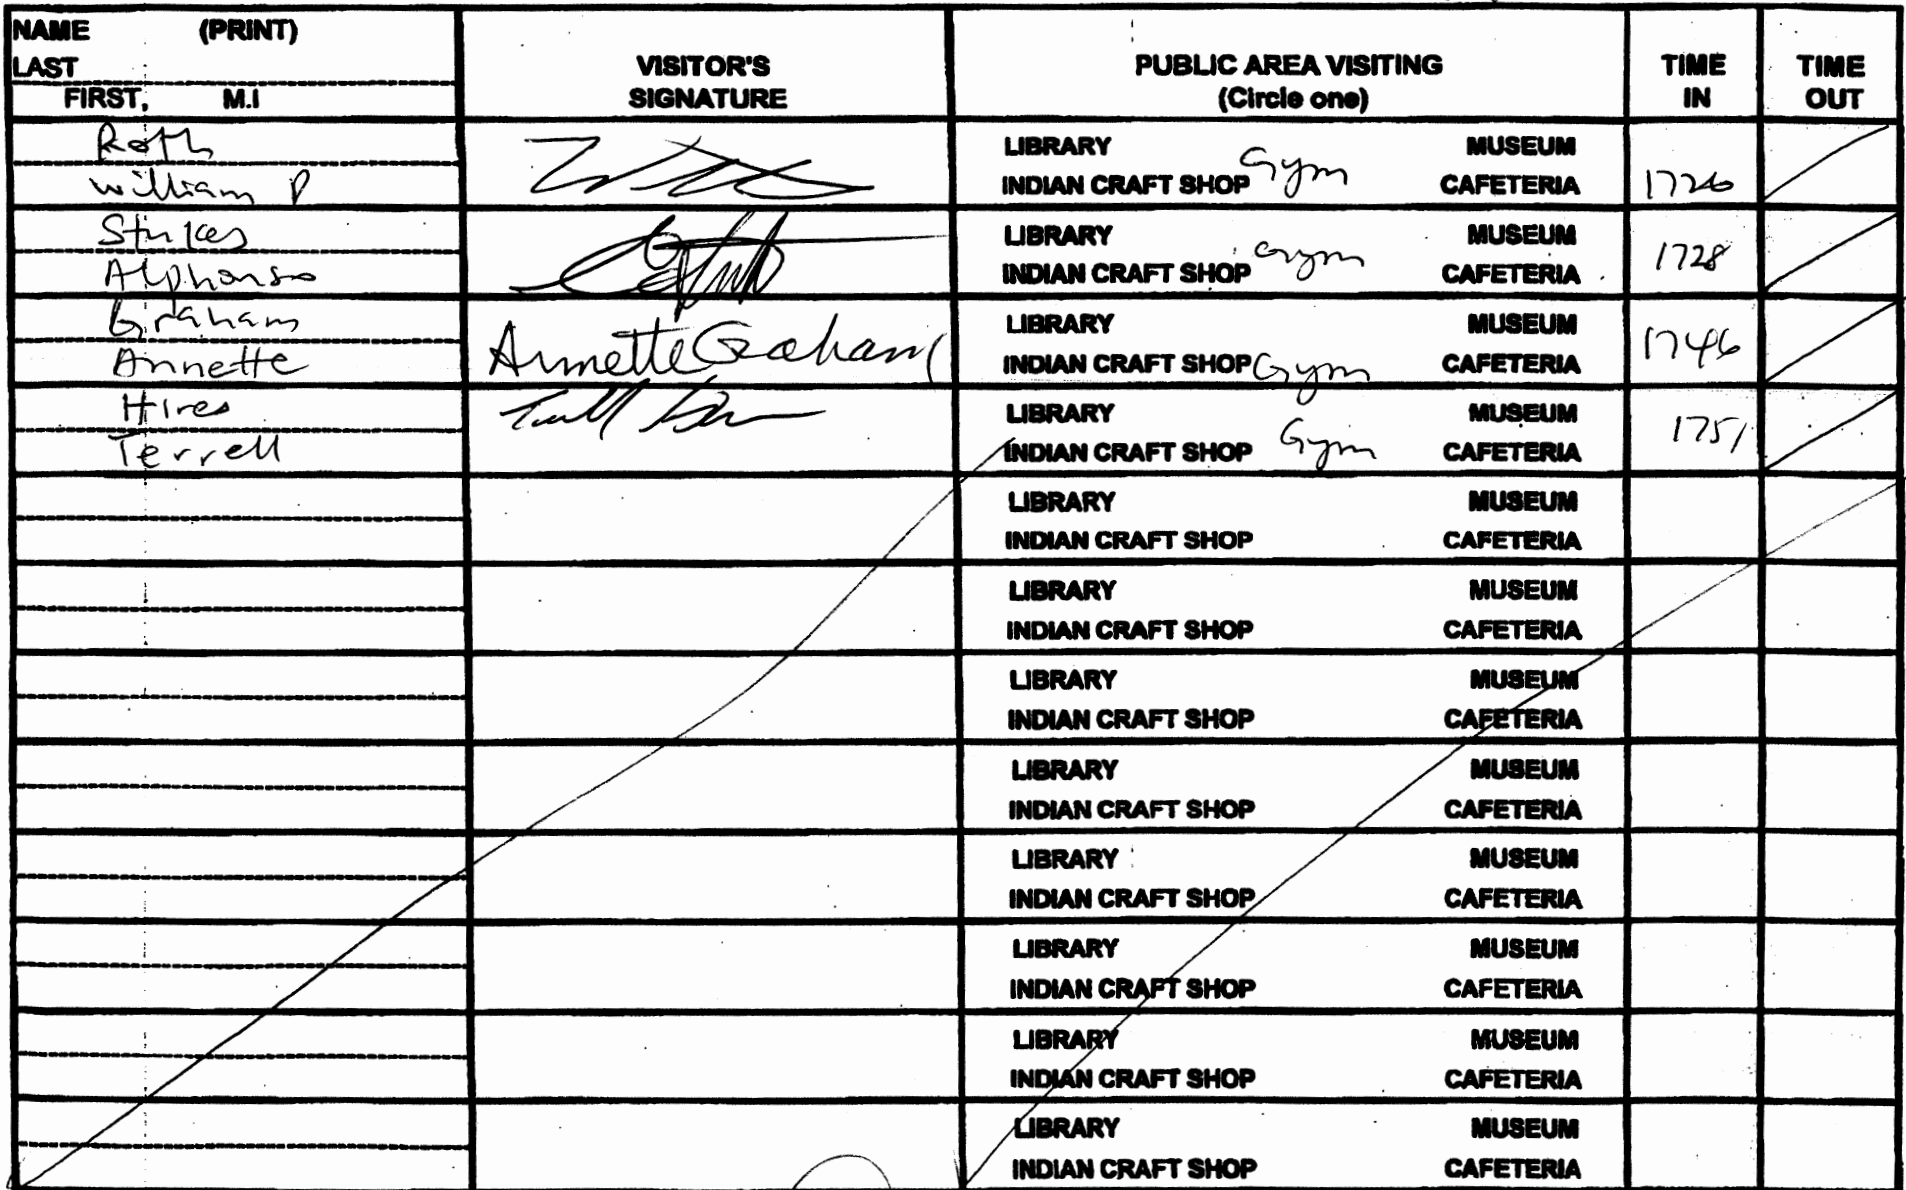 NAME (PRINT)
LAST
FIRST, M.I
VISITOR'S
SIGNATURE
PUBLIC AREA VISITING
(Circle one)
TIME
IN
TIME
OUT
Roth
William P
LIBRARY MUSEUM
Gym
INDIAN CRAFT SHOP CAFETERIA
1726
Stukes
Alphonso
LIBRARY MUSEUM
Gym
INDIAN CRAFT SHOP CAFETERIA
1728
Graham
Annette
Annette Graham
LIBRARY MUSEUM
INDIAN CRAFT SHOP Gym CAFETERIA
1746
Hires
Terrell
LIBRARY MUSEUM
INDIAN CRAFT SHOP Gym CAFETERIA
1751
LIBRARY MUSEUM
INDIAN CRAFT SHOP CAFETERIA
LIBRARY MUSEUM
INDIAN CRAFT SHOP CAFETERIA
LIBRARY MUSEUM
INDIAN CRAFT SHOP CAFETERIA
LIBRARY MUSEUM
INDIAN CRAFT SHOP CAFETERIA
LIBRARY MUSEUM
INDIAN CRAFT SHOP CAFETERIA
LIBRARY MUSEUM
INDIAN CRAFT SHOP CAFETERIA
LIBRARY MUSEUM
INDIAN CRAFT SHOP CAFETERIA
LIBRARY MUSEUM
INDIAN CRAFT SHOP CAFETERIA